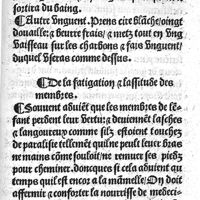 sortira du baing.
¶Autre Unguent. Prens cire blāche/oingt
douaille: & beurre frais/ & metz tout en ung
Vaisseau sur les charbons & fais unguent/
duquel Useras comme dessus.
¶De la fatigation & lassitude des
membres.
¶Souvent aduiēt que les membres de lē-
fant perdent leur vertu: & deuiennēt lasches
& langoureux comme silz estoiēt touchez
de paralisie tellemēt quilz ne peult leur bras
ne mains cōme souloit/ne remuer ses piedz
pour cheminer. doncques si cela aduient au
temps quil est encor a la māmelle: On doit
affermir & conforter la nourisse de medeci-